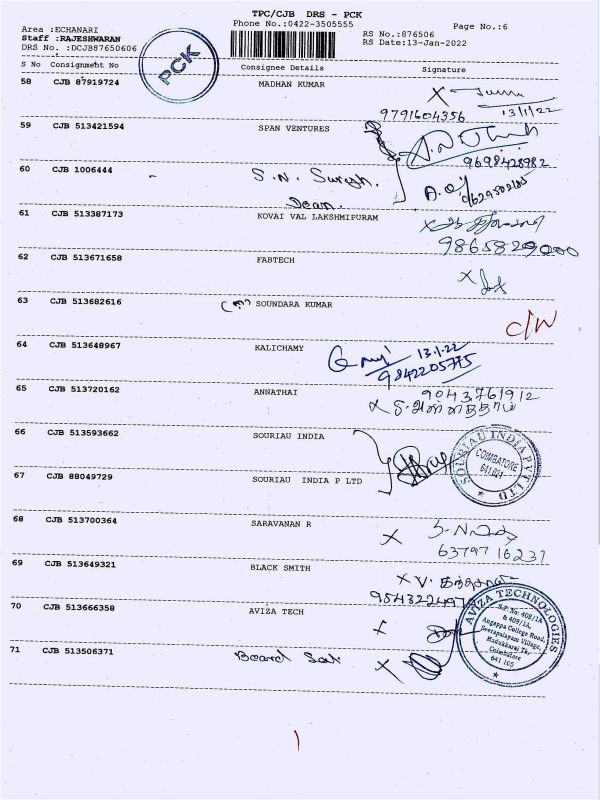 TPC/CJB DRS - PCK
Phone No.:0422-3505555
Page No.:6
Area :ECHANARI
Staff :RAJESHWARAN
DRS No. :DCJB87650606
RS No.:876506
RS Date:13-Jan-2022
PCK
S No Consignment No Consignee Details Signature
58 CJB 87919724 MADHAN KUMAR
9791604356 13/1/22
59 CJB 513421594 SPAN VENTURES
9698428982
60 CJB 1006444 S.N. Suresh.
Dean.
9629502185
61 CJB 513387173 KOVAI VAL LAKSHMIPURAM
9865829000
62 CJB 513671658 FABTECH
63 CJB 513682616 SOUNDARA KUMAR
C/W
64 CJB 513648967 KALICHAMY
13.1.22
9842205775
65 CJB 513720162 ANNATHAI
9043761912
66 CJB 513593662 SOURIAU INDIA
SOURIAU INDIA PVT LTD
COIMBATORE
641 021
67 CJB 88049729 SOURIAU INDIA P LTD
68 CJB 513700364 SARAVANAN R
6379716231
69 CJB 513649321 BLACK SMITH
70 CJB 513666358 AVIZA TECH
AVIZA TECHNOLOGIES
S.F. No: 408/1A
& 409/1A,
Angappa College Road,
Seerapalayam Village,
Madukkarai Tk,
Coimbatore
641 105
71 CJB 513506371